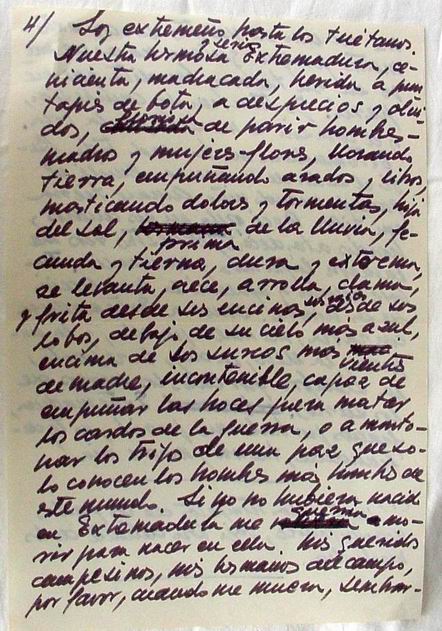 4/ Soy extremeño hasta los tuétanos.
Nuestra hermosa y seria Extremadura, ce-
nicienta, machacada, herida a pun-
tapiés de bota, a desprecios y olvi-
dos, de parir hombres-
madros y mujeres-flores, llorando
tierra, empuñando arados y libros,
masticando dolores y tormentas, hija
del sol, prima de la lluvia, fe-
cunda y tierna, dura y extrema,
se levanta, arrolla, clama,
y grita desde sus encinas, desde sus
lobos, debajo de su cielo más azul,
encima de los surcos más vientre
de madre, incontenible, capaz de
empuñar las hoces para matar
los cardos de la guerra, o amonto-
nar los trigo de una paz que so-
lo conocen los hombres más hombres de
este mundo. Si yo no hubiera nacido
en Extremadura me a mo-
rir para nacer en ella. Mis queridos
campesinos, mis hermanos del campo,
por favor, cuando me muera, sembrar-